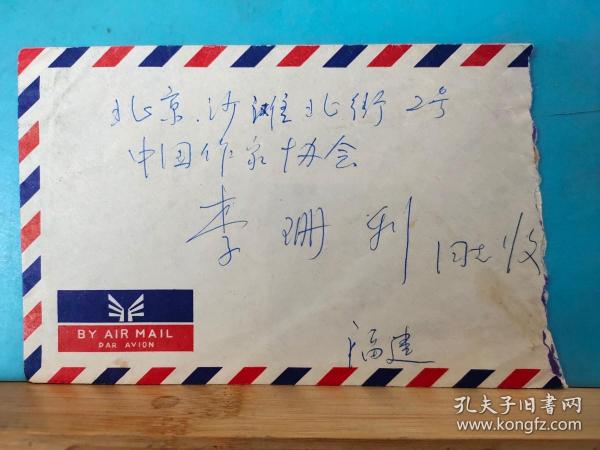 北京.沙滩北街2号
中国作家协会
李珊利 同志收
BY AIR MAIL
PAR AVION
福建
孔夫子旧书网
www.kongfz.com